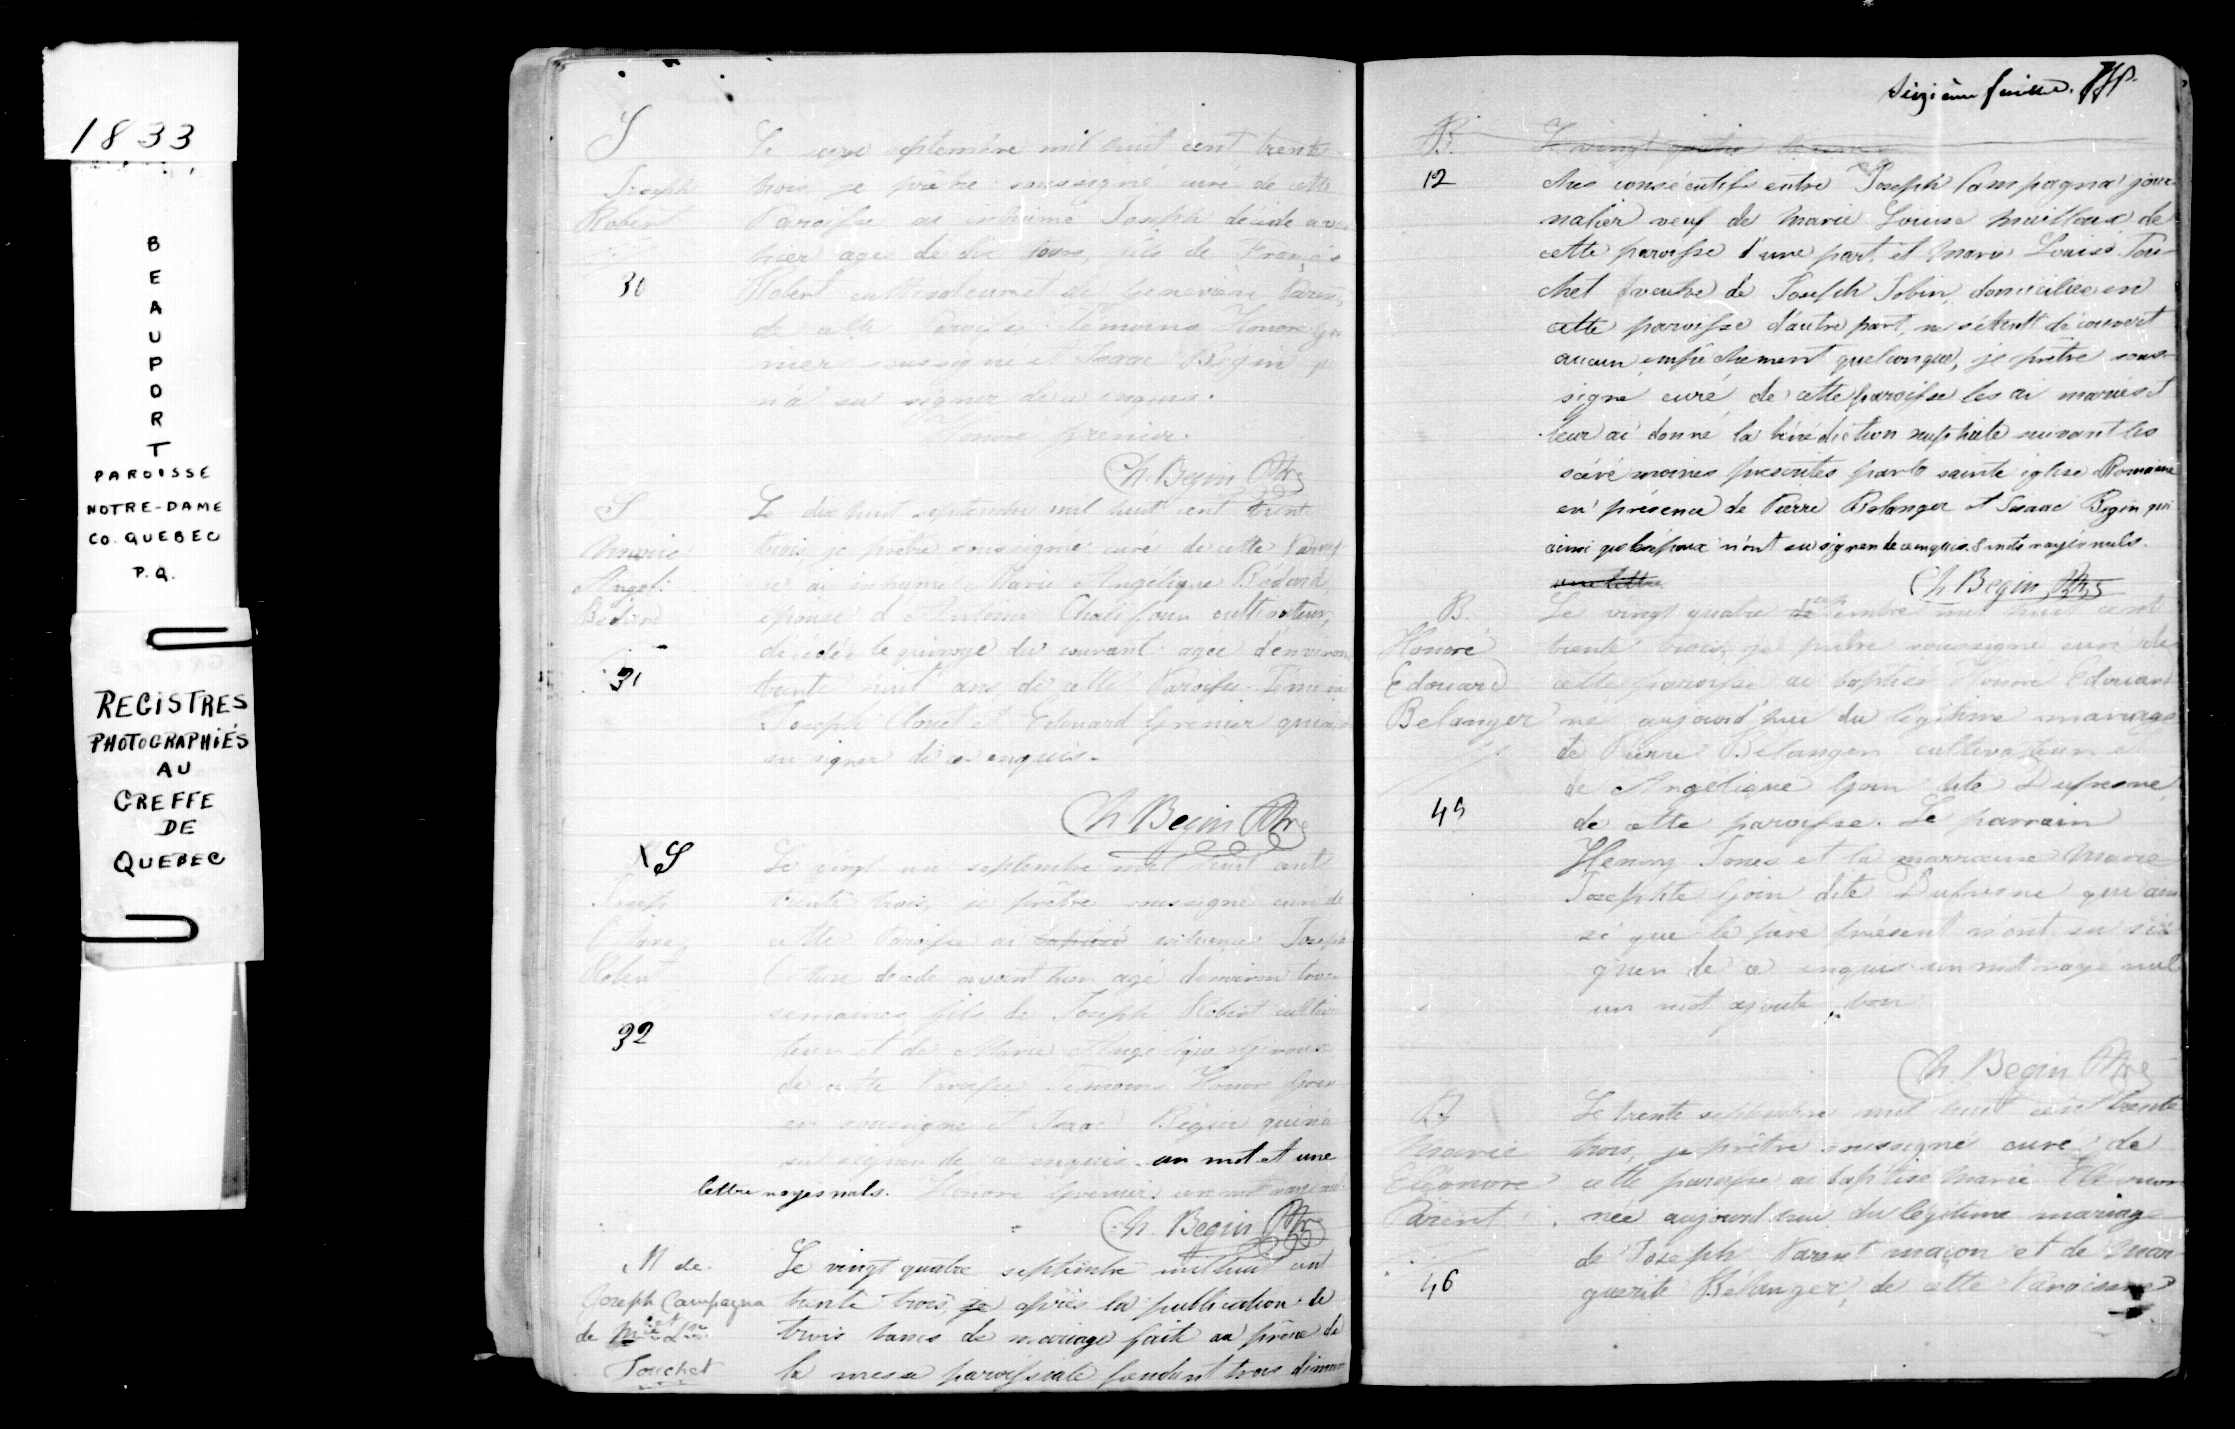 1833
BEAUPORT
PAROISSE
NOTRE-DAME
CO. QUEBEC
P.Q.
REGISTRES
PHOTOGRAPHIÉS
AU
GREFFE
DE
QUEBEC
S
Joseph
Robert
30
Le septembre mil huit cent trente
trois, je prêtre soussigné curé de cette
Paroisse ai inhumé Joseph décédé
hier agé de dix jours, fils de François
Robert et de Geneviève
de cette Paroisse. Témoins Honoré
nier soussigné et Isaac Bégin
n'a su signer de ce enquis.
Honoré Grenier.
Ch. Begin Ptre
S
Marie
Angel.
Bédard
31
Le dix huit septembre mil huit cent trente
trois, je prêtre soussigné curé de cette Parois
se ai inhumé Marie Angélique Bédard
epouse d'Antoine Chalifour cultivateur,
décédée le quinze du courant agée d'environ
trente huit ans, de cette Paroisse. Témoins
Joseph Clouet et Edouard Grenier
su signer de ce enquis.
Ch Begin Ptre
S
Joseph
Robert
32
Le vingt un septembre mil huit cent
trente trois, je prêtre soussigné curé de
cette Paroisse ai baptisé inhumé Joseph
décédé avant hier agé d'environ trois
semaines, fils de Joseph Robert cultiva
teur et de Marie Angélique
de cette Paroisse. Témoins Honoré Gren
ier soussigné et Isaac Bégin qui n'a
su signer de ce enquis. un mot et une
lettre rayes nuls. Honoré Grenier
Ch. Begin Ptre
M de
Joseph Campagna
et
de Mie Lse
Touchet
Le vingt quatre septembre mil huit cent
trente trois, je après la publication de
trois bancs de mariage faite au prône de
la messe paroissiale pendant trois diman
Seizième feuille.
B.
12
Le vingt quatre
ches consécutifs entre Joseph Campagna jour
nalier veuf de Marie Louise Mailloux de
cette paroisse d'une part, et Marie Louise Tou-
chet veuve de Joseph Tobin, domiciliée en
cette paroisse d'autre part, ne s'étant découvert
aucun empêchement quelconque, je prêtre sous-
signé curé de cette paroisse les ai mariés et
leur ai donné la bénédiction nuptiale suivant les
cérémonies prescrites par la sainte église Romaine
en présence de Pierre Belanger et Isaac Begin qui
ainsi que les epoux n'ont su signer de ce enquis. 8 mots rayés nuls.
une lettre
Ch Begin Ptre
B.
Honoré
Edouard
Belanger
45
Le vingt quatre septembre mil huit cent
trente trois, je prêtre soussigné curé de
cette paroisse ai baptisé Honoré Edouard
né aujourd'hui du légitime mariage
de Pierre Belanger cultivateur et
de Angélique Goin dite Dufresne
de cette paroisse. Le parrain
Henry Jones et la marraine Marie
Josephte Goin dite Dufresne qui ain
si que le père présent n'ont su si
gner de ce enquis un mot rayé nul
un mot ajouté bon
Ch. Begin Ptre
B
Marie
Eléonore
Parent
46
Le trente septembre mil huit cent trente
trois, je prêtre soussigné curé de
cette paroisse ai baptisé Marie Eléonore
née aujourd'hui du légitime mariage
de Joseph Parent maçon et de Mar
guerite Bélanger, de cette Paroisse